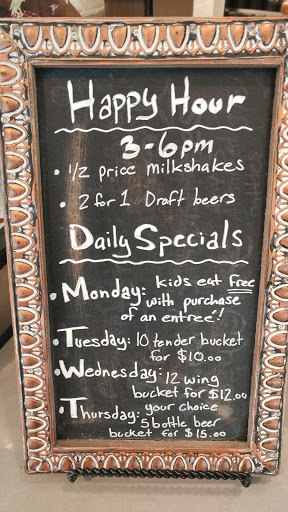 Happy Hour
3-6pm
• 1/2 price milkshakes
• 2 for 1 Draft beers
Daily Specials
• Monday: kids eat free
with purchase
of an entree!
• Tuesday: 10 tender bucket
for $10.00
• Wednesday: 12 wing
bucket for $12.00
• Thursday: your choice
5 bottle beer
bucket for $15.00